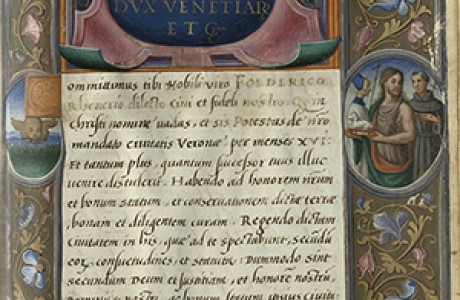 DVX VENETIAR
ETC
ommittimus tibi Nobili viro FOEDERICO
Rhenerio dilecto Civi et fideli nostro. Q in
Christi nomine vadas, et sis Potestas de nro
mandato civitatis Veronæ per menses XVI:
Et tantum plus, quantum successor tuus illuc
venire distulerit. Habendo ad honorem nrum
et bonum statum, et conservationem dictæ terræ
bonam et diligentem curam. Regendo dictam
Civitatem in his, quæ ad te spectabunt, secundũ
eoꝝ consuetudines, et statuta. Dummodo sint
secundum Deum et Justitiam, et honorẽ nostrũ,